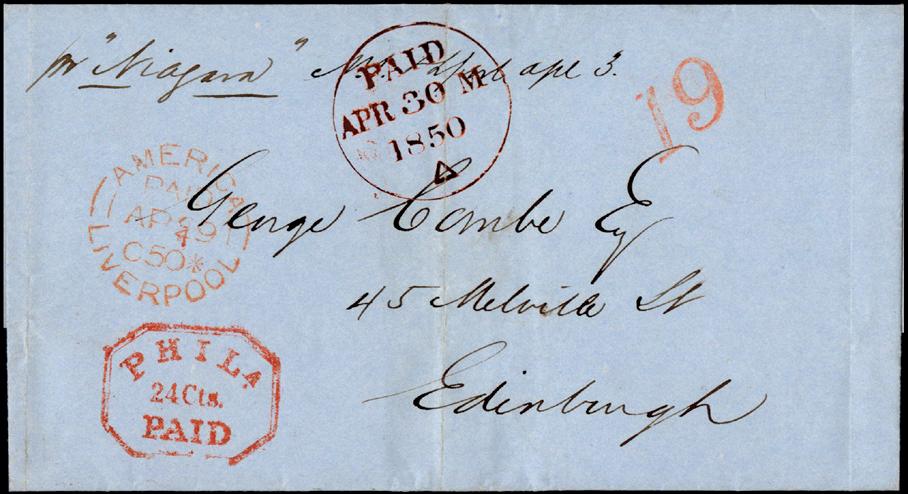 pr "Niagara" apl 3.
PAID
APR 30 M
1850
19
AMERICA
PAID
LIVERPOOL
C50*
George Combe Esq
45 Melville St
Edinburgh
PHILA
24 Cts.
PAID